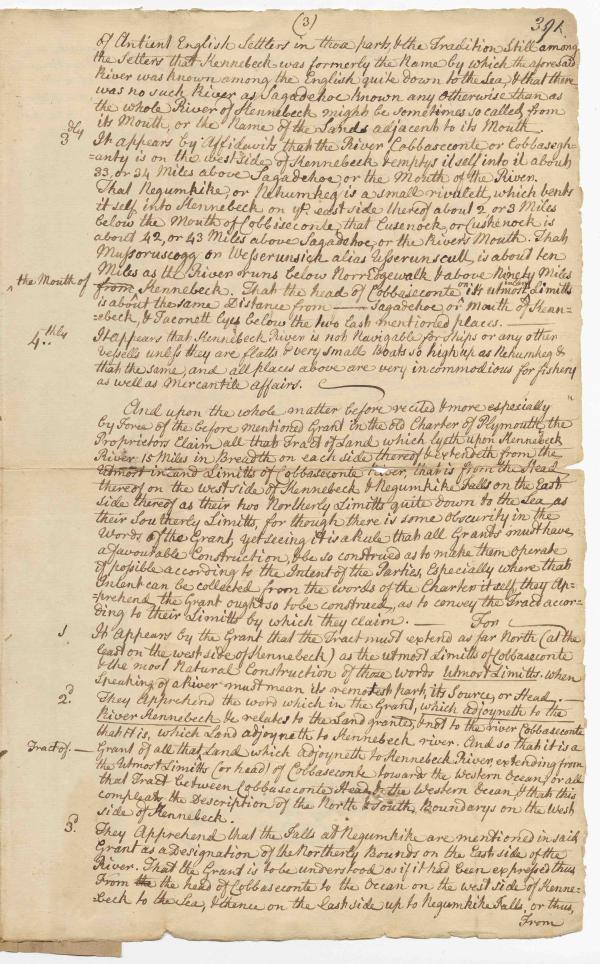 (3)
391.
of Antient English Settlers in those parts, & the Tradition Still among
the Setlers that Kennebeck was formerly the Name by which the aforesaid
River was known among the English quite down to the Sea, & that there
was no such River as Sagadehoc known any otherwise than as
the whole River of Kennebeck might be sometimes so called, from
its Mouth, or the Name of the Lands adjacent to its Mouth.
3dly It appears by Affidavits, that the River Cobbaseconte or Cobbasegh-
=anty is on the west side of Kennebeck & emptys it self into it about
33, or 34 Miles above Sagadehoc, or the Mouth of the River.
That Negumkike, or Nehumkeg is a small rivulett, which vents
it self into Kennebeck on ye. east side thereof about 2 or 3 Miles
below the Mouth of Cobbiseconte, that Cusenock, or Cushenock is
about 42, or 43 Miles above Sagadehoc, or the Rivers Mouth. That
Mussoruscogg or Wesserunsick alias Usserunscutt, is about ten
Miles as the River runs below Norredgewalk & above Ninety Miles
^ the Mouth of
from Kennebeck. That the head of Cobbaseconte on its utmost inland Limitts
is about the same Distance from Sagadehoc or Mouth of Kenn-
=ebeck, & Taconett lyes below the two last mentioned places.
4..thly It appears that Kennebeck River is not Navigable for Ships or any other
vessells unless they are flatts & very small Boats so high up as Nehumkeg &
that the same, and all places above are very incommodious for fishery
as well as Mercantile affairs.
And upon the whole matter before recited & more especially
by Force of the before mentioned Grant in the old Charter of Plymouth, the
Proprietors Claim all that Tract of Land which lyeth upon Kennebeck
River 15 Miles in Breadth on each side thereof & extendeth from the
Utmost inland Limitts of Cobbaseconte River, that is from the Head
thereof on the west side of Kennebeck & Negumkike Falls on the East
side thereof as their two Northerly Limitts quite down to the Sea, as
their Southerly Limitts, for though there is some obscurity in the
Words of the Grant, yet seeing it is a rule that all Grants must have
a favourable Construction, & be so construed as to make them operate
if possible according to the Intent of the Parties, Especially where that
Intent can be collected from the words of the Charter it self, they Ap-
=prehend the Grant ought so to be construed, as to convey the Tract accor=
ding to their Limitts by which they claim. For
1. It appears by the Grant that the Tract must extend as far North (at the
least on the west side of Kennebeck) as the utmost Limitts of Cobbaseconte
& the most Natural Construction of those words Utmost Limitts. when
speaking of a River must mean its remotest part, its Source, or Head.
2d. They Apprehend the word which in the Grant, which adjoyneth to the
River Kennebeck &c relates to the Land granted, & not to the river Cobbaseconte
that is, which Land adjoyneth to Kennebeck river. And so that it is a
Tract of
Grant of all that ^ Land which adjoyneth to Kennebeck River, extending from
the Utmost Limitts (or head) of Cobbaseconte towards the Western Ocean, or all
that Tract between Cobbaseconte Head, & the Western Ocean, & that this
compleats the Description of the North & South, Boundarys on the West
side of Kennebeck.
3d. They Apprehend that the Falls at Negumkike are mentioned in said
Grant as a Designation of the Northerly Bounds on the East side of the
River. That the Grant is to be understood as if it had been expressed thus
From the the head of Cobbaseconte to the Ocean on the west side of Kenne-
=beck to the Sea, & thence on the East side up to Negumkike Falls, or thus,
From